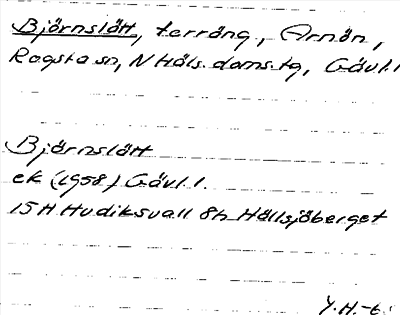 Björnslått, terräng, Arnön,
Rogsta sn, N Häls. doms.tg, Gävl.l
Björnslått
ek (1958) Gävl.l.
15H Hudiksvall 8h Hällsjöberget
Y.H.-6